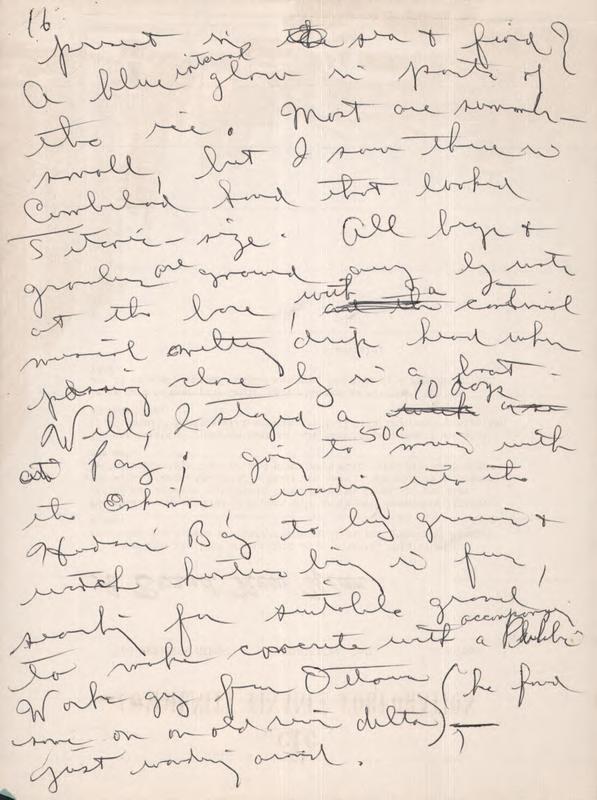 16
present in the sea & fiord?
A blue internal glow in parts of
the ice. Most are
small, but I saw three in
Cumberland Sound that looked
Titanic-size. All bergs &
growlers are ground away by water
at the base, with a continual
musical melting drip heard when
passing close by in a boat.
Well, I stayed a 10 days
at Pang; going to 50c movies with
the Eskimos, wading into the
Hudson's Bay to buy groceries &
watch hunters bring in furs,
searching for suitable gravel
to make concrete with accompanying a Public
Works guy from Ottawa (he found
some on an old river delta)
just wandering around.